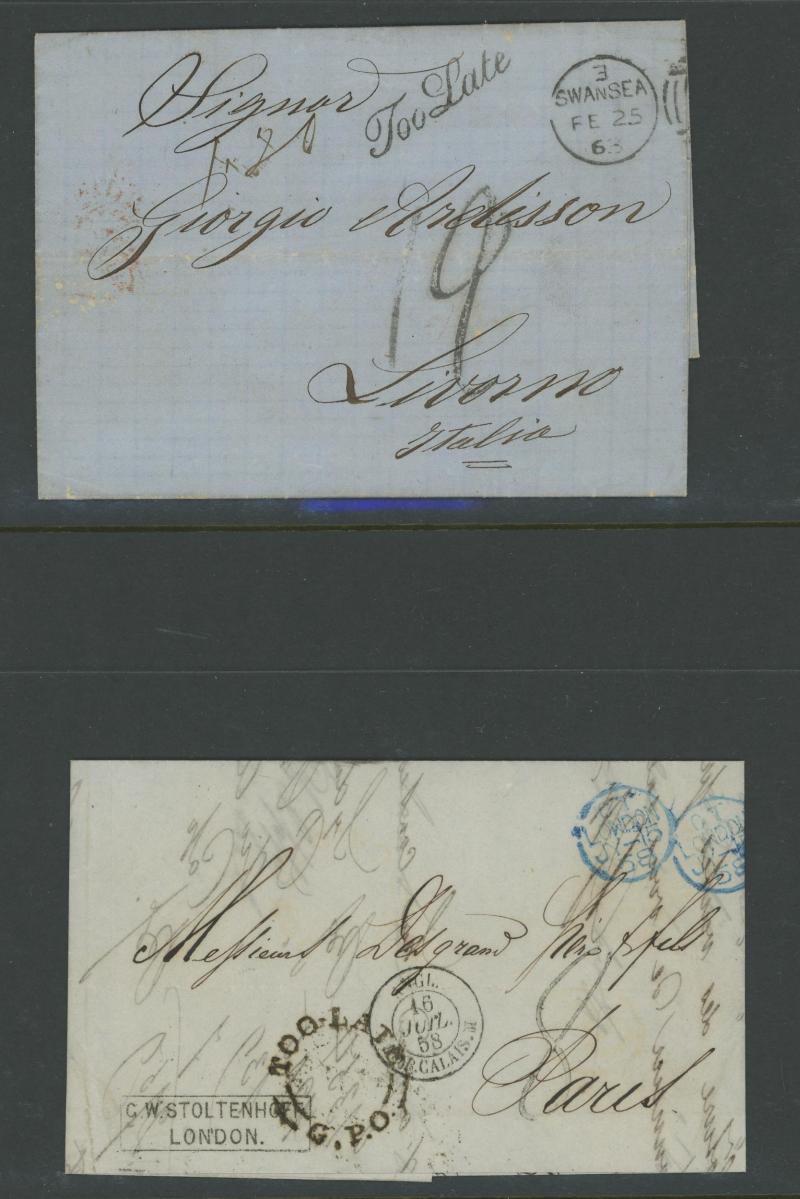 Signor
Too Late
3
SWANSEA
FE 25
63
Giorgio Ardisson
19
Livorno
Italia
LONDON
JY-15
58
LONDON
58
Messieurs Desgrand Père & fils
8
Paris
ANGL.
16
JUIL.
58
CALAIS
TOO-LATE
G.P.O
C.W.STOLTENHOFF
LONDON.